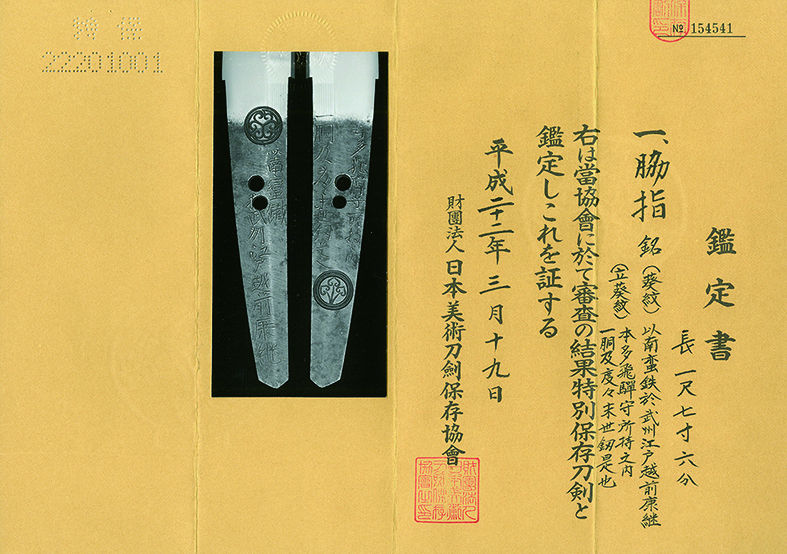 鑑定書
一、脇指 銘 長一尺七寸六分
(葵紋) 以南蛮鉄於武州江戸越前康継
(立葵紋) 本多飛騨守所持之内
一胴及度々末世劔是也
右は當協會に於て審査の結果特別保存刀剣と
鑑定しこれを証する
平成二十二年三月十九日
財團法人 日本美術刀劍保存協會
№ 154541
特 保
22201001